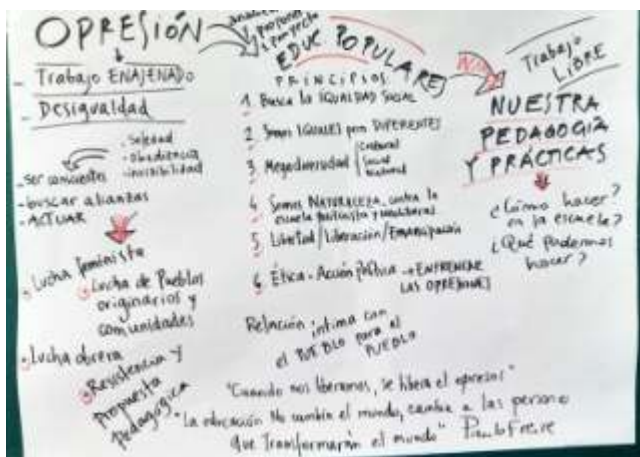 OPRESIÓN
- Trabajo ENAJENADO
- Desigualdad
- Soledad
- obediencia
- invisibilidad
- ser conscientes
- buscar alianzas
- ACTUAR
Lucha feminista
Lucha de Pueblos
originarios y
comunidades
Lucha obrera
Resistencia y
Propuesta
Pedagógica
EDUC POPULARES
PRINCIPIOS
1. Busca la IGUALDAD SOCIAL
2 Somos IGUALES pero DIFERENTES
3 Megadiversidad
Cultural
Social
Natural
4 Somos NATURALEZA, contra la
escuela y
5 Libertad/Liberación/Emancipación
6 Ética - Acción política → ENFRENTAR
LAS OPRESIONES
Relación íntima con
el PUEBLO para el
PUEBLO
"Cuando nos liberamos, se libera el opresor"
"La educación No cambia el mundo, cambia a las personas
que Transformarán el mundo" Paulo Freire
Trabajo
LIBRE
NUESTRA
PEDAGOGÍA
Y PRÁCTICAS
¿Cómo hacer?
en la escuela?
¿Qué podemos
hacer?